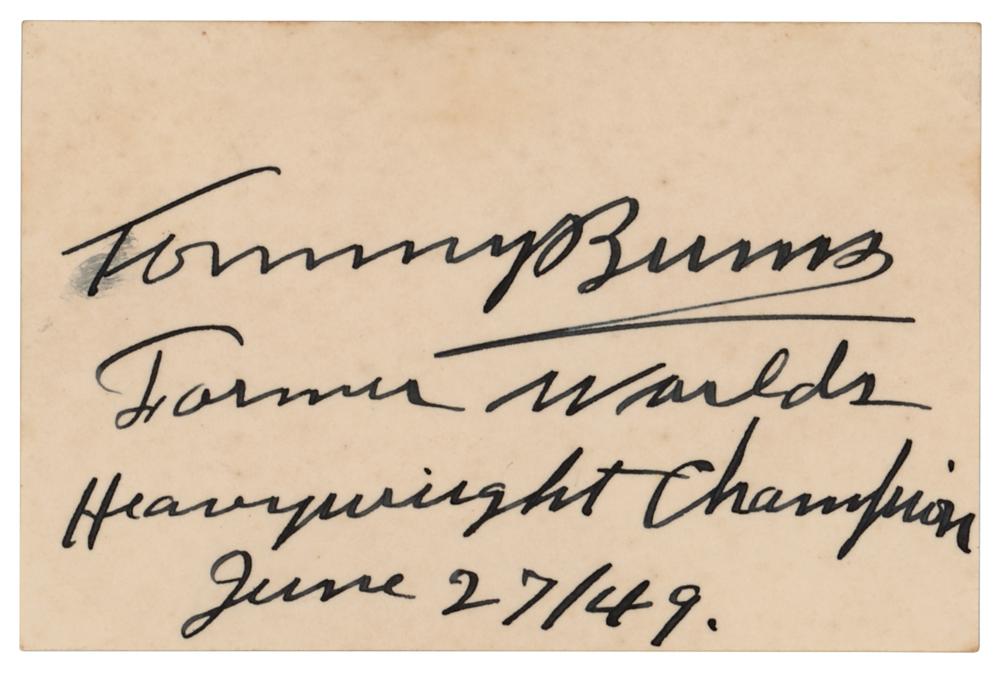 Tommy Burns
Former Worlds
Heavyweight Champion
June 27/49.